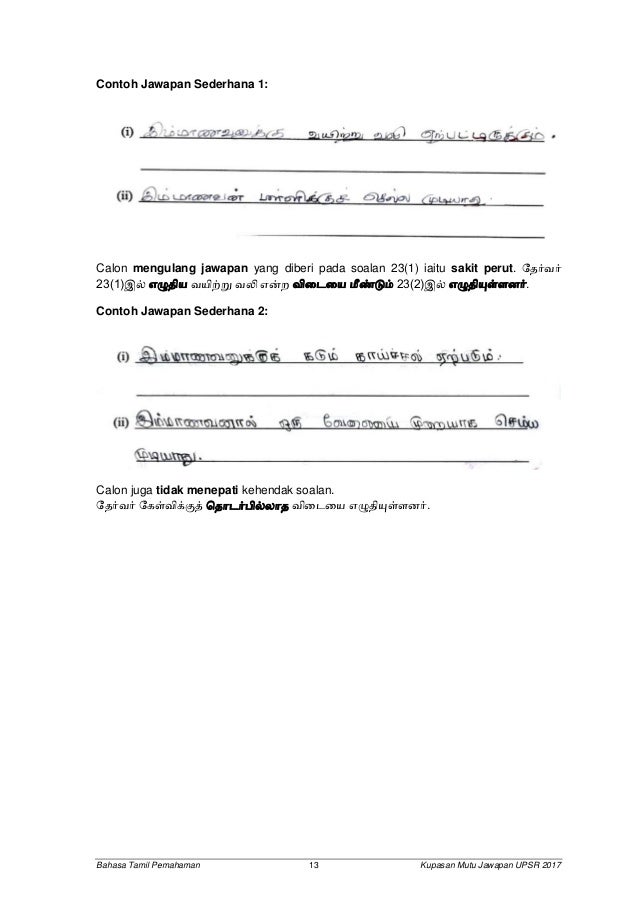 Contoh Jawapan Sederhana 1:
(i) இம்மாணவனுக்கு வயிற்று வலி ஏற்பட்டிருக்கும்.
(ii) இம்மாணவன் பள்ளிக்குச் செல்ல முடியாது.
Calon mengulang jawapan yang diberi pada soalan 23(1) iaitu sakit perut. தேர்வர்
23(1)இல் எழுதிய வயிற்று வலி என்ற விடையை மீண்டும் 23(2)இல் எழுதியுள்ளனர்.
Contoh Jawapan Sederhana 2:
(i) இம்மாணவனுக்குக் கடும் காய்ச்சல் ஏற்படும்.
(ii) இம்மாணவனால் ஒரு வேலையை முறையாக செய்ய
முடியாது.
Calon juga tidak menepati kehendak soalan.
தேர்வர் கேள்விக்குத் தொடர்பில்லாத விடையை எழுதியுள்ளனர்.
Bahasa Tamil Pemahaman 13 Kupasan Mutu Jawapan UPSR 2017